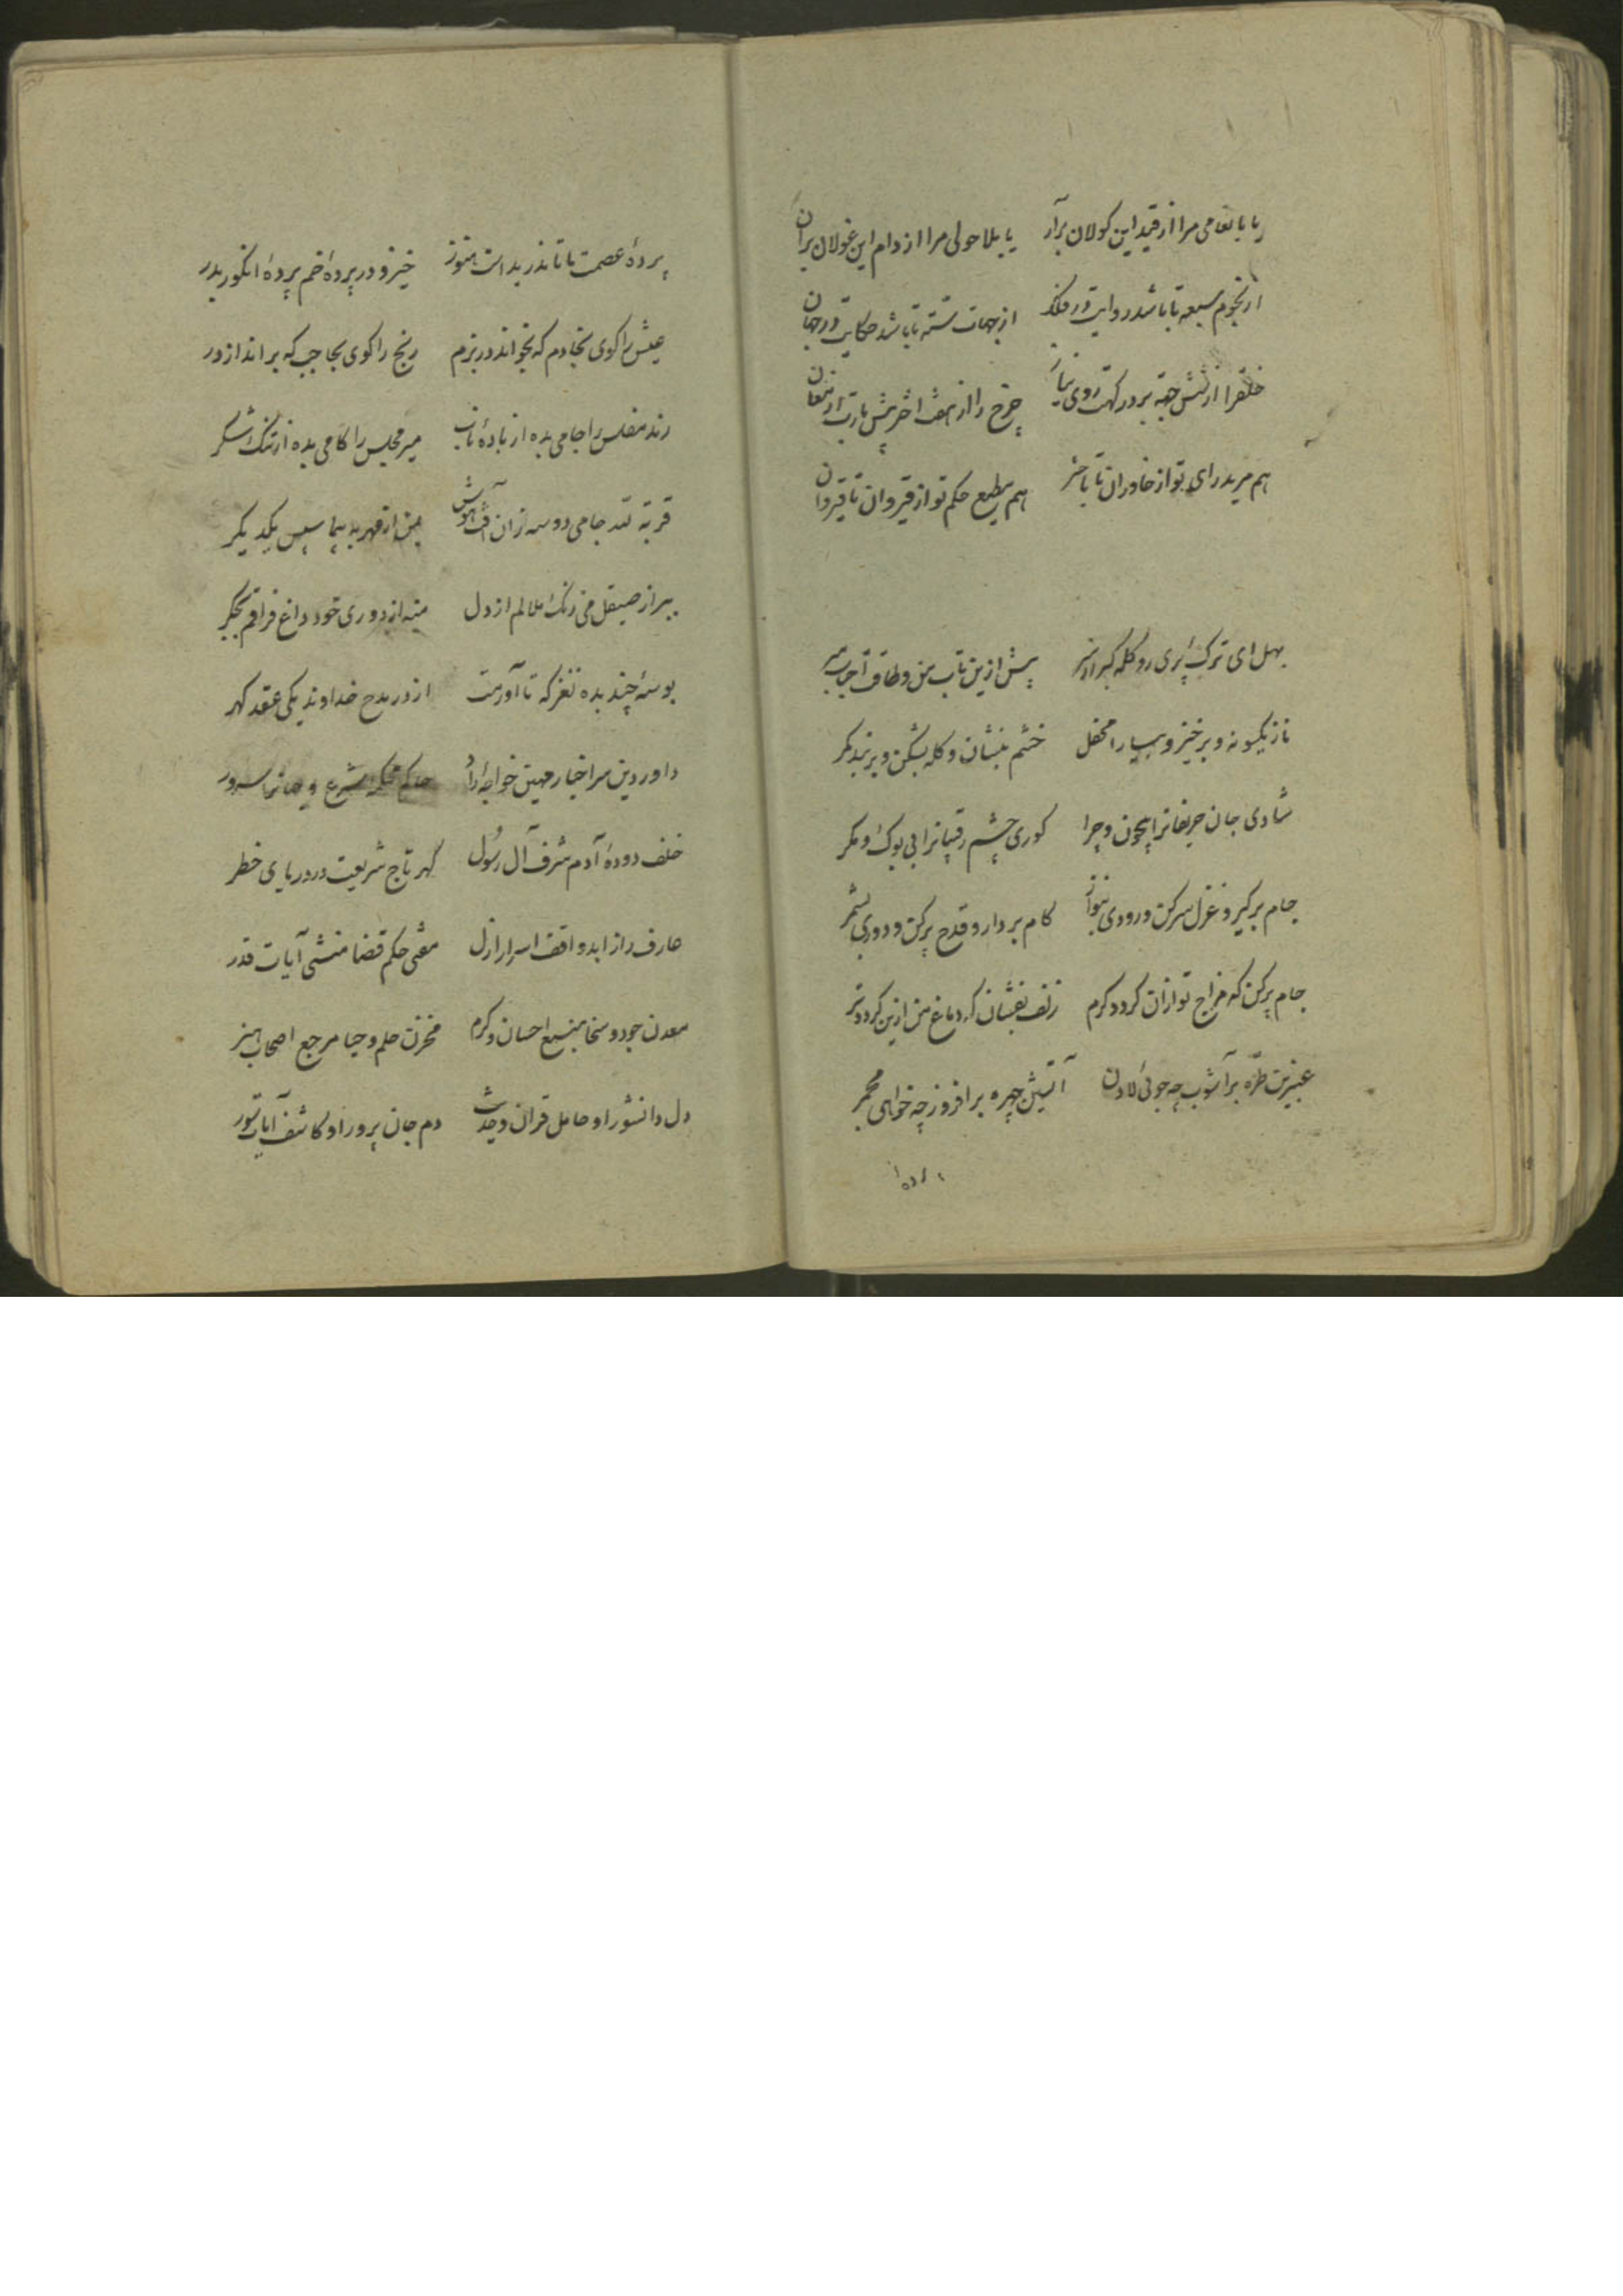 یا بانعامی مرا از قید این کولان برآر یا بلاحولی مرا از دام این غولان بران
از نجوم سبعه تا باشد روایت در فلک از جهات سته تا باشد حکایت در جهان
خلقرا از شش جهة بر درکهت روی نیاز چرخ را از هفت اختر پیش بارت
هم مرید رای تو از خاوران تا باختر هم مطیع حکم تو از قیروان تا قیروان
بهل ای ترک پری رو کله کبر از سر پیش ازین تاب من و طاقت احباب مبر
ناز یکسو نه و برخیز و بیارا محفل خشم بنشان و کله بشکن و بربند کمر
شادی جان حریفانرا بیچون و چرا کوری چشم رقیبانرا بی بوک و مکر
جام برکیر و غزل سرکن و رودی بنواز کام بردار و قدح پرکن و دوری بشمر
جام پرکن که مزاج تو ازان کردد کرم زلف بفشان که دماغ من ازین کردد تر
عنبرین طره برآشوب چه جوئی لادن آتشین چهره برافروز چه خواهی مجمر
پرده
پردهٔ عصمت ما تا ندریداست هنوز خیز و در پردهٔ خم پردهٔ انکور بدر
عیش را کوی بخادم که بخواند در بزم رنج را کوی بحاجب که براند از در
رند مفلس را جامی بده از بادهٔ ناب میر مجلس را کامی بده از تنک شکر
قربة لله جامی دو سه زان آفت هوش بمن از مهر بپیما سپس یکدیکر
ببر از صیقل می زنک ملالم از دل منه از دوری خود داغ فراقم بجکر
بوسهٔ چند بده نغز که تا آورمت از در مدح خداوند یکی عقد کهر
داور دین سر اخیار مهین خواجهٔ راد حاکم محکمهٔ شرع سرور
خلف دودهٔ آدم شرف آل رسول کهر تاج شریعت در دریای خطر
عارف راز ابد واقف اسرار ازل مفتی حکم قضا منشی آیات قدر
معدن جود و سخا منبع احسان و کرم مخزن حلم و حیا مرجع اصحاب هنر
دل دانشور او حامل قران و حدیث دم جان پرور او کاشف آیات